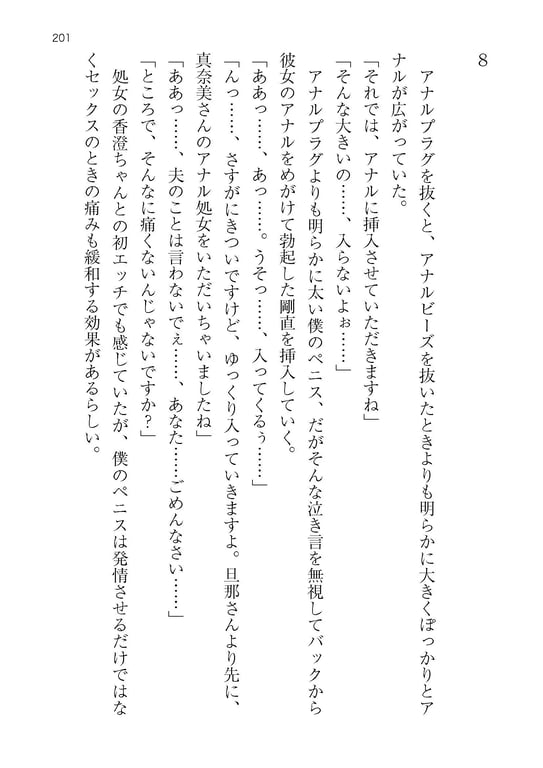 201
8
　アナルプラグを抜くと、アナルビーズを抜いたときよりも明らかに大きくぽっかりとア
ナルが広がっていた。
「それでは、アナルに挿入させていただきますね」
「そんな大きいの……、入らないよぉ……」
　アナルプラグよりも明らかに太い僕のペニス、だがそんな泣き言を無視してバックから
彼女のアナルをめがけて勃起した剛直を挿入していく。
「ああっ……、あっ……。うそっ……、入ってくるぅ……」
「んっ……、さすがにきついですけど、ゆっくり入っていきますよ。旦那さんより先に、
真奈美さんのアナル処女をいただいちゃいましたね」
「ああっ……、夫のことは言わないでぇ……、あなた……ごめんなさい……」
「ところで、そんなに痛くないんじゃないですか？」
　処女の香澄ちゃんとの初エッチでも感じていたが、僕のペニスは発情させるだけではな
くセックスのときの痛みも緩和する効果があるらしい。